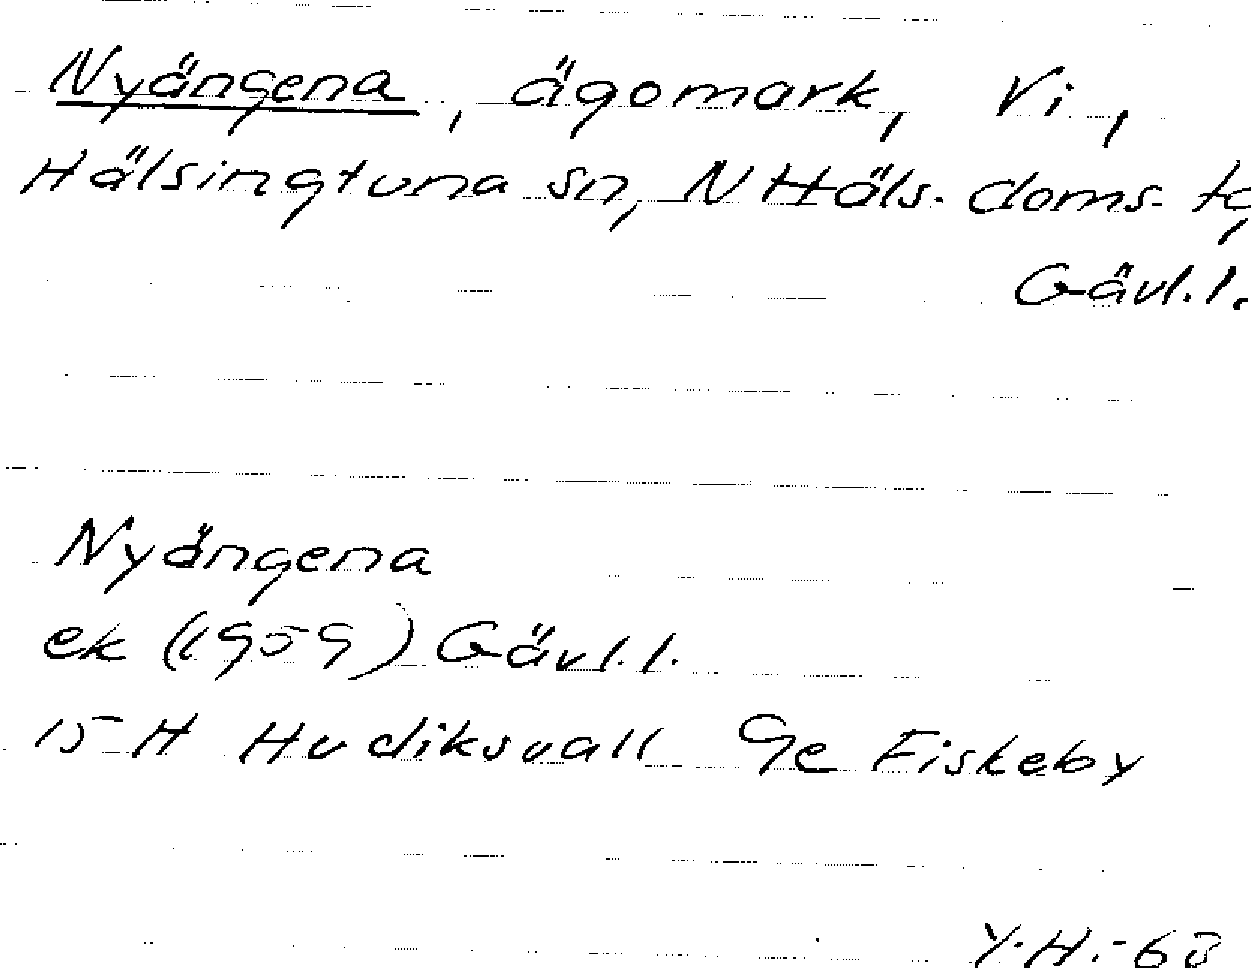 Nyängena, ägomark, Vi,
Hälsingtuna sn, N Häls. doms. tg,
Gävl.l.
Nyängena
ek (1959) Gävl.l.
15 H Hudiksvall 9e Fiskeby
Y.H.-63